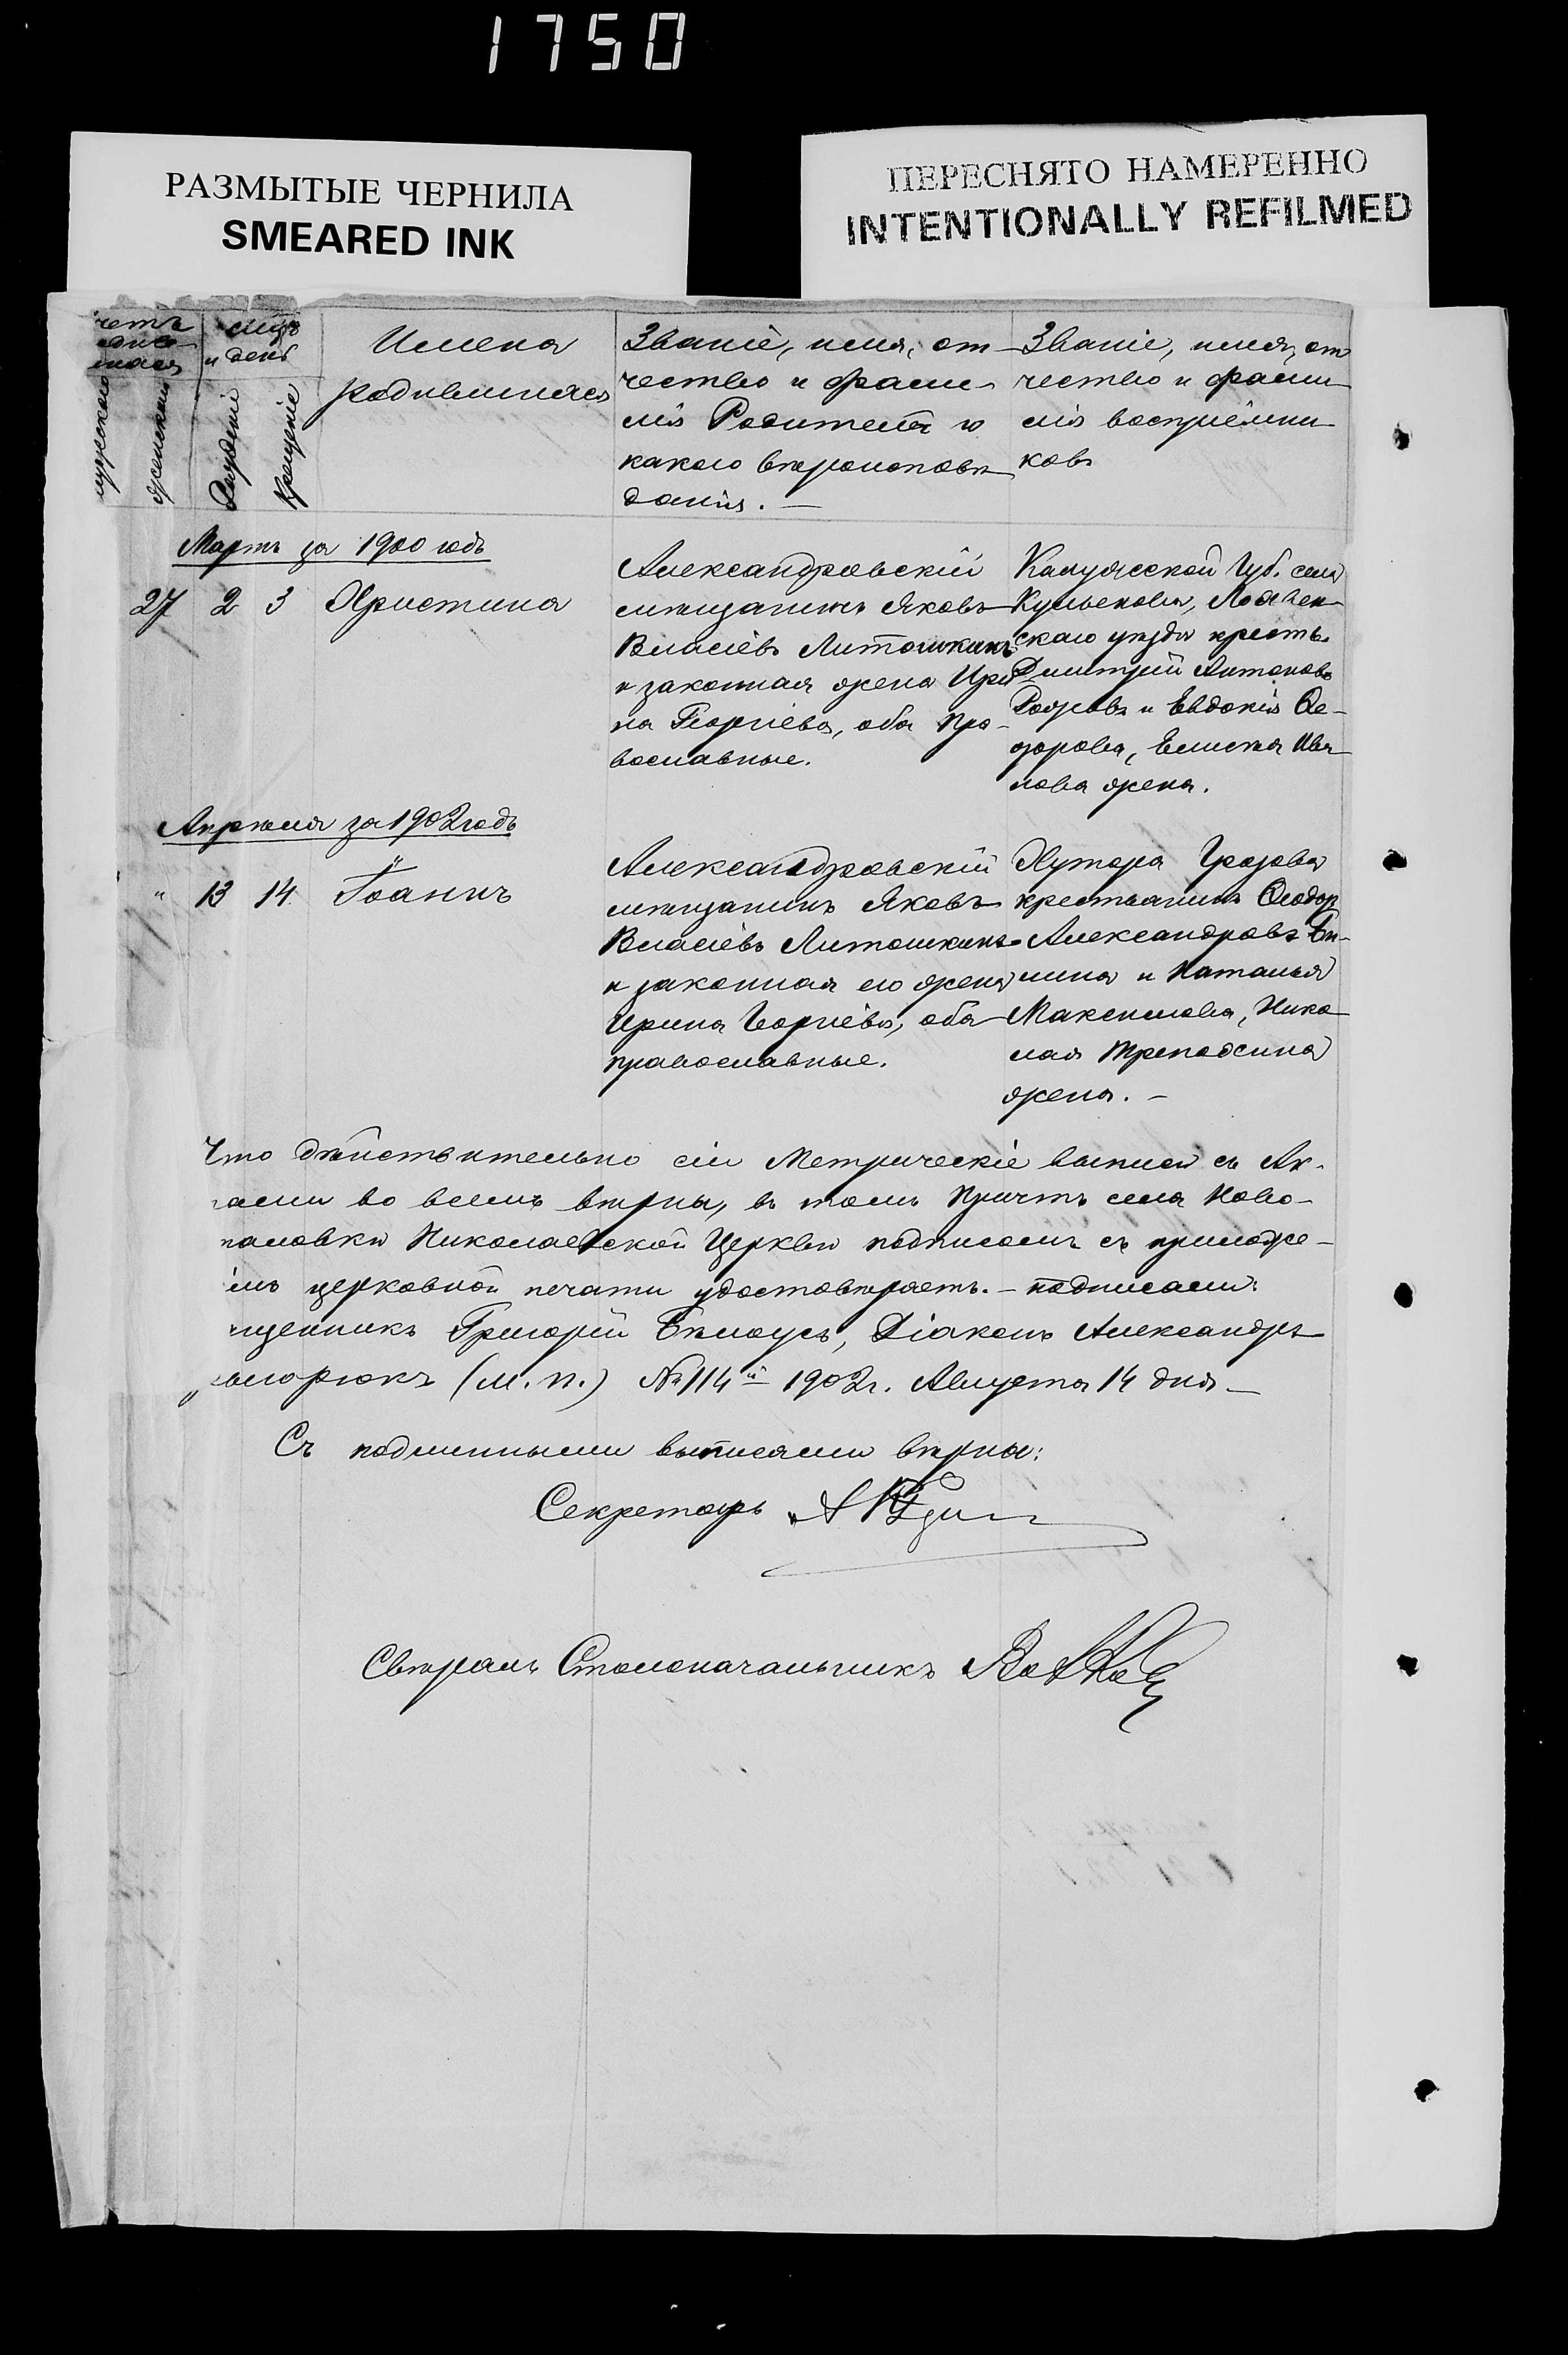 1750
РАЗМЫТЫЕ ЧЕРНИЛА
SMEARED INK
ПЕРЕСНЯТО НАМЕРЕННО
INTENTIONALLY REFILMED
четъ
мужескаго
женскаго
и день
Рожденіе
Крещеніе
Имена
родившихся
Званіе, имя, от-
чество и фами-
лія Родителей и
какого вѣроиспове-
данія. —
Званіе, имя, от
чество и фами-
лія воспріемни-
ковъ
Мартъ за 1900 годъ
27 2 3 Христина
Александровскій
мѣщанинъ Яковъ
Власіевъ Литошкинъ
и законная жена Ири
на Георгіева, оба пра-
вославные.
Калужской Губ. села
уѣзда крестъ.
Дмитрій Антоновъ
и Евдокія Ѳе-
дорова, Ива
нова жена.
Апрѣля за 1902 годъ
" 13 14 Іоаннъ
Александровскій
мѣщанинъ Яковъ
Власіевъ Литошкинъ
и законная его жена
Ирина Георгіева, оба
православные.
Хутора Грозова
крестьянинъ Ѳеодоръ
Александровъ Бѣ-
лина и Наталья
Максимова, Нико-
лая
жена. —
Что дѣйствительно сіи Метрическіе выписи съ Ак-
тами во всемъ вѣрны, въ томъ Причтъ села Ново-
павловки Николаевской Церкви подписомъ съ приложе-
церковной печати удостовѣряетъ. — подписали:
Григорій Бѣлоусъ, Діаконъ Александръ
(М. П.) № 114й 1902 г. Августа 14 дня —
Съ подлинными выписями вѣрно:
Секретарь
Свѣрялъ Столоначальникъ